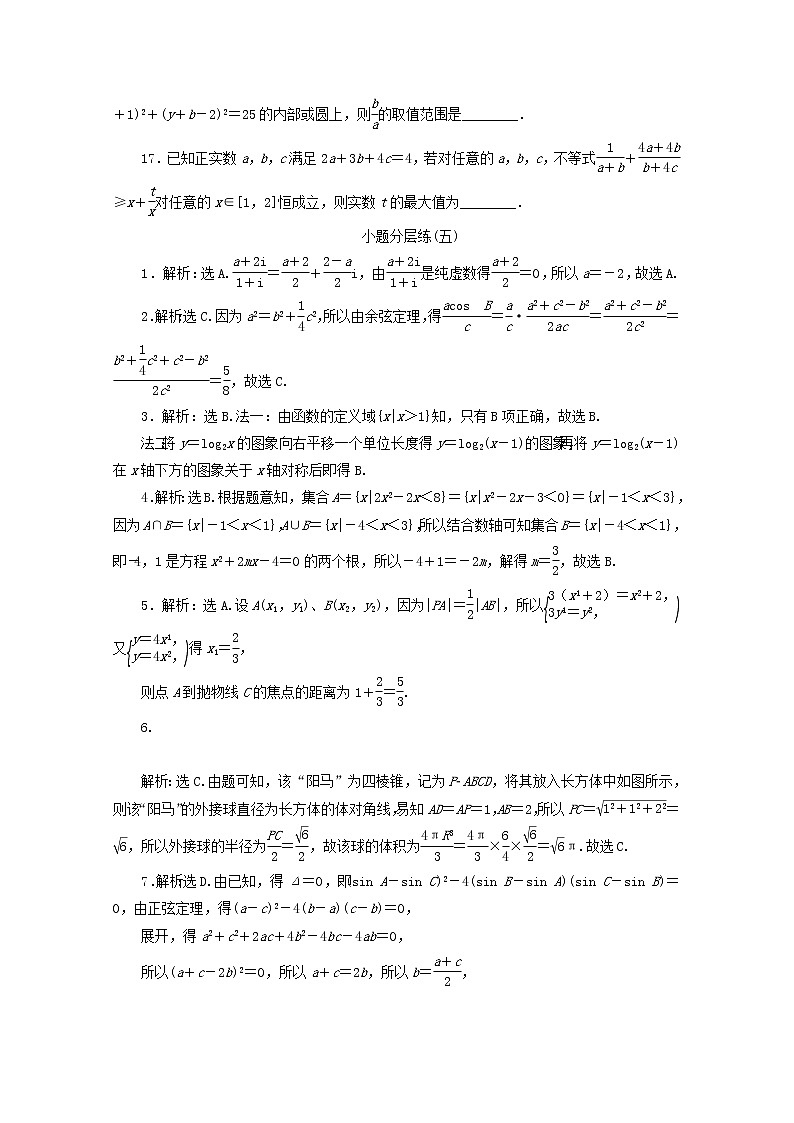 +1)²+(y+b-2)²=25的内部或圆上,则b/a的取值范围是________.
17.已知正实数 a,b,c 满足 2a+3b+4c=4,若对任意的 a,b,c,不等式1/(a+b)+(4a+4b)/(b+4c)
≥x+t/x对任意的 x∈[1,2]恒成立,则实数 t 的最大值为________.
小题分层练(五)
1.解析:选A.(a+2i)/(1+i)=(a+2)/2+(2-a)/2 i,由(a+2i)/(1+i)是纯虚数得(a+2)/2=0,所以 a=-2,故选A.
2.解析:选C.因为 a²=b²+1/4c²,所以由余弦定理,得(acos B)/c=a/c·(a²+c²-b²)/2ac=(a²+c²-b²)/2c²=
(b²+1/4c²+c²-b²)/2c²=5/8,故选C.
3.解析:选B.法一:由函数的定义域{x|x>1}知,只有B项正确,故选B.
法二:将 y=log₂x 的图象向右平移一个单位长度得 y=log₂(x-1)的图象,再将 y=log₂(x-1)
在 x 轴下方的图象关于 x 轴对称后即得B.
4.解析:选B.根据题意知,集合A={x|2x²-2x<8}={x|x²-2x-3<0}={x|-1<x<3},
因为A∩B={x|-1<x<1},A∪B={x|-4<x<3},所以结合数轴可知集合B={x|-4<x<1},
即-4,1是方程 x²+2mx-4=0的两个根,所以-4+1=-2m,解得 m=3/2,故选B.
5.解析:选A.设A(x₁,y₁)、B(x₂,y₂),因为|PA|=1/2|AB|,所以{3(x¹+2)=x²+2, 3y¹=y²,)
又{y=4x¹, y=4x²,)得 x₁=2/3,
则点A到抛物线C的焦点的距离为1+2/3=5/3.
6.
解析:选C.由题可知,该“阳马”为四棱锥,记为P-ABCD,将其放入长方体中如图所示,
则该“阳马”的外接球直径为长方体的体对角线,易知AD=AP=1,AB=2,所以PC=√(1²+1²+2²)=
√6,所以外接球的半径为PC/2=√6/2,故该球的体积为4πR³/3=4π/3×6/4×√6/2=√6π.故选C.
7.解析:选D.由已知,得 Δ=0,即(sin A-sin C)²-4(sin B-sin A)(sin C-sin B)=
0,由正弦定理,得(a-c)²-4(b-a)(c-b)=0,
展开,得 a²+c²+2ac+4b²-4bc-4ab=0,
所以(a+c-2b)²=0,所以 a+c=2b,所以 b=(a+c)/2,